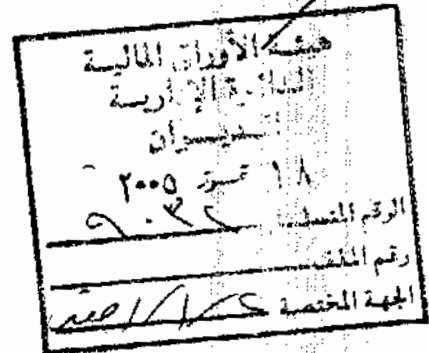 هيئة الأوراق المالية
الدائرة الإدارية
الديوان
١٨ تموز ٢٠٠٥
الرقم المتسلسل ٩٠٣٢
رقم الملف
الجهة المختصة